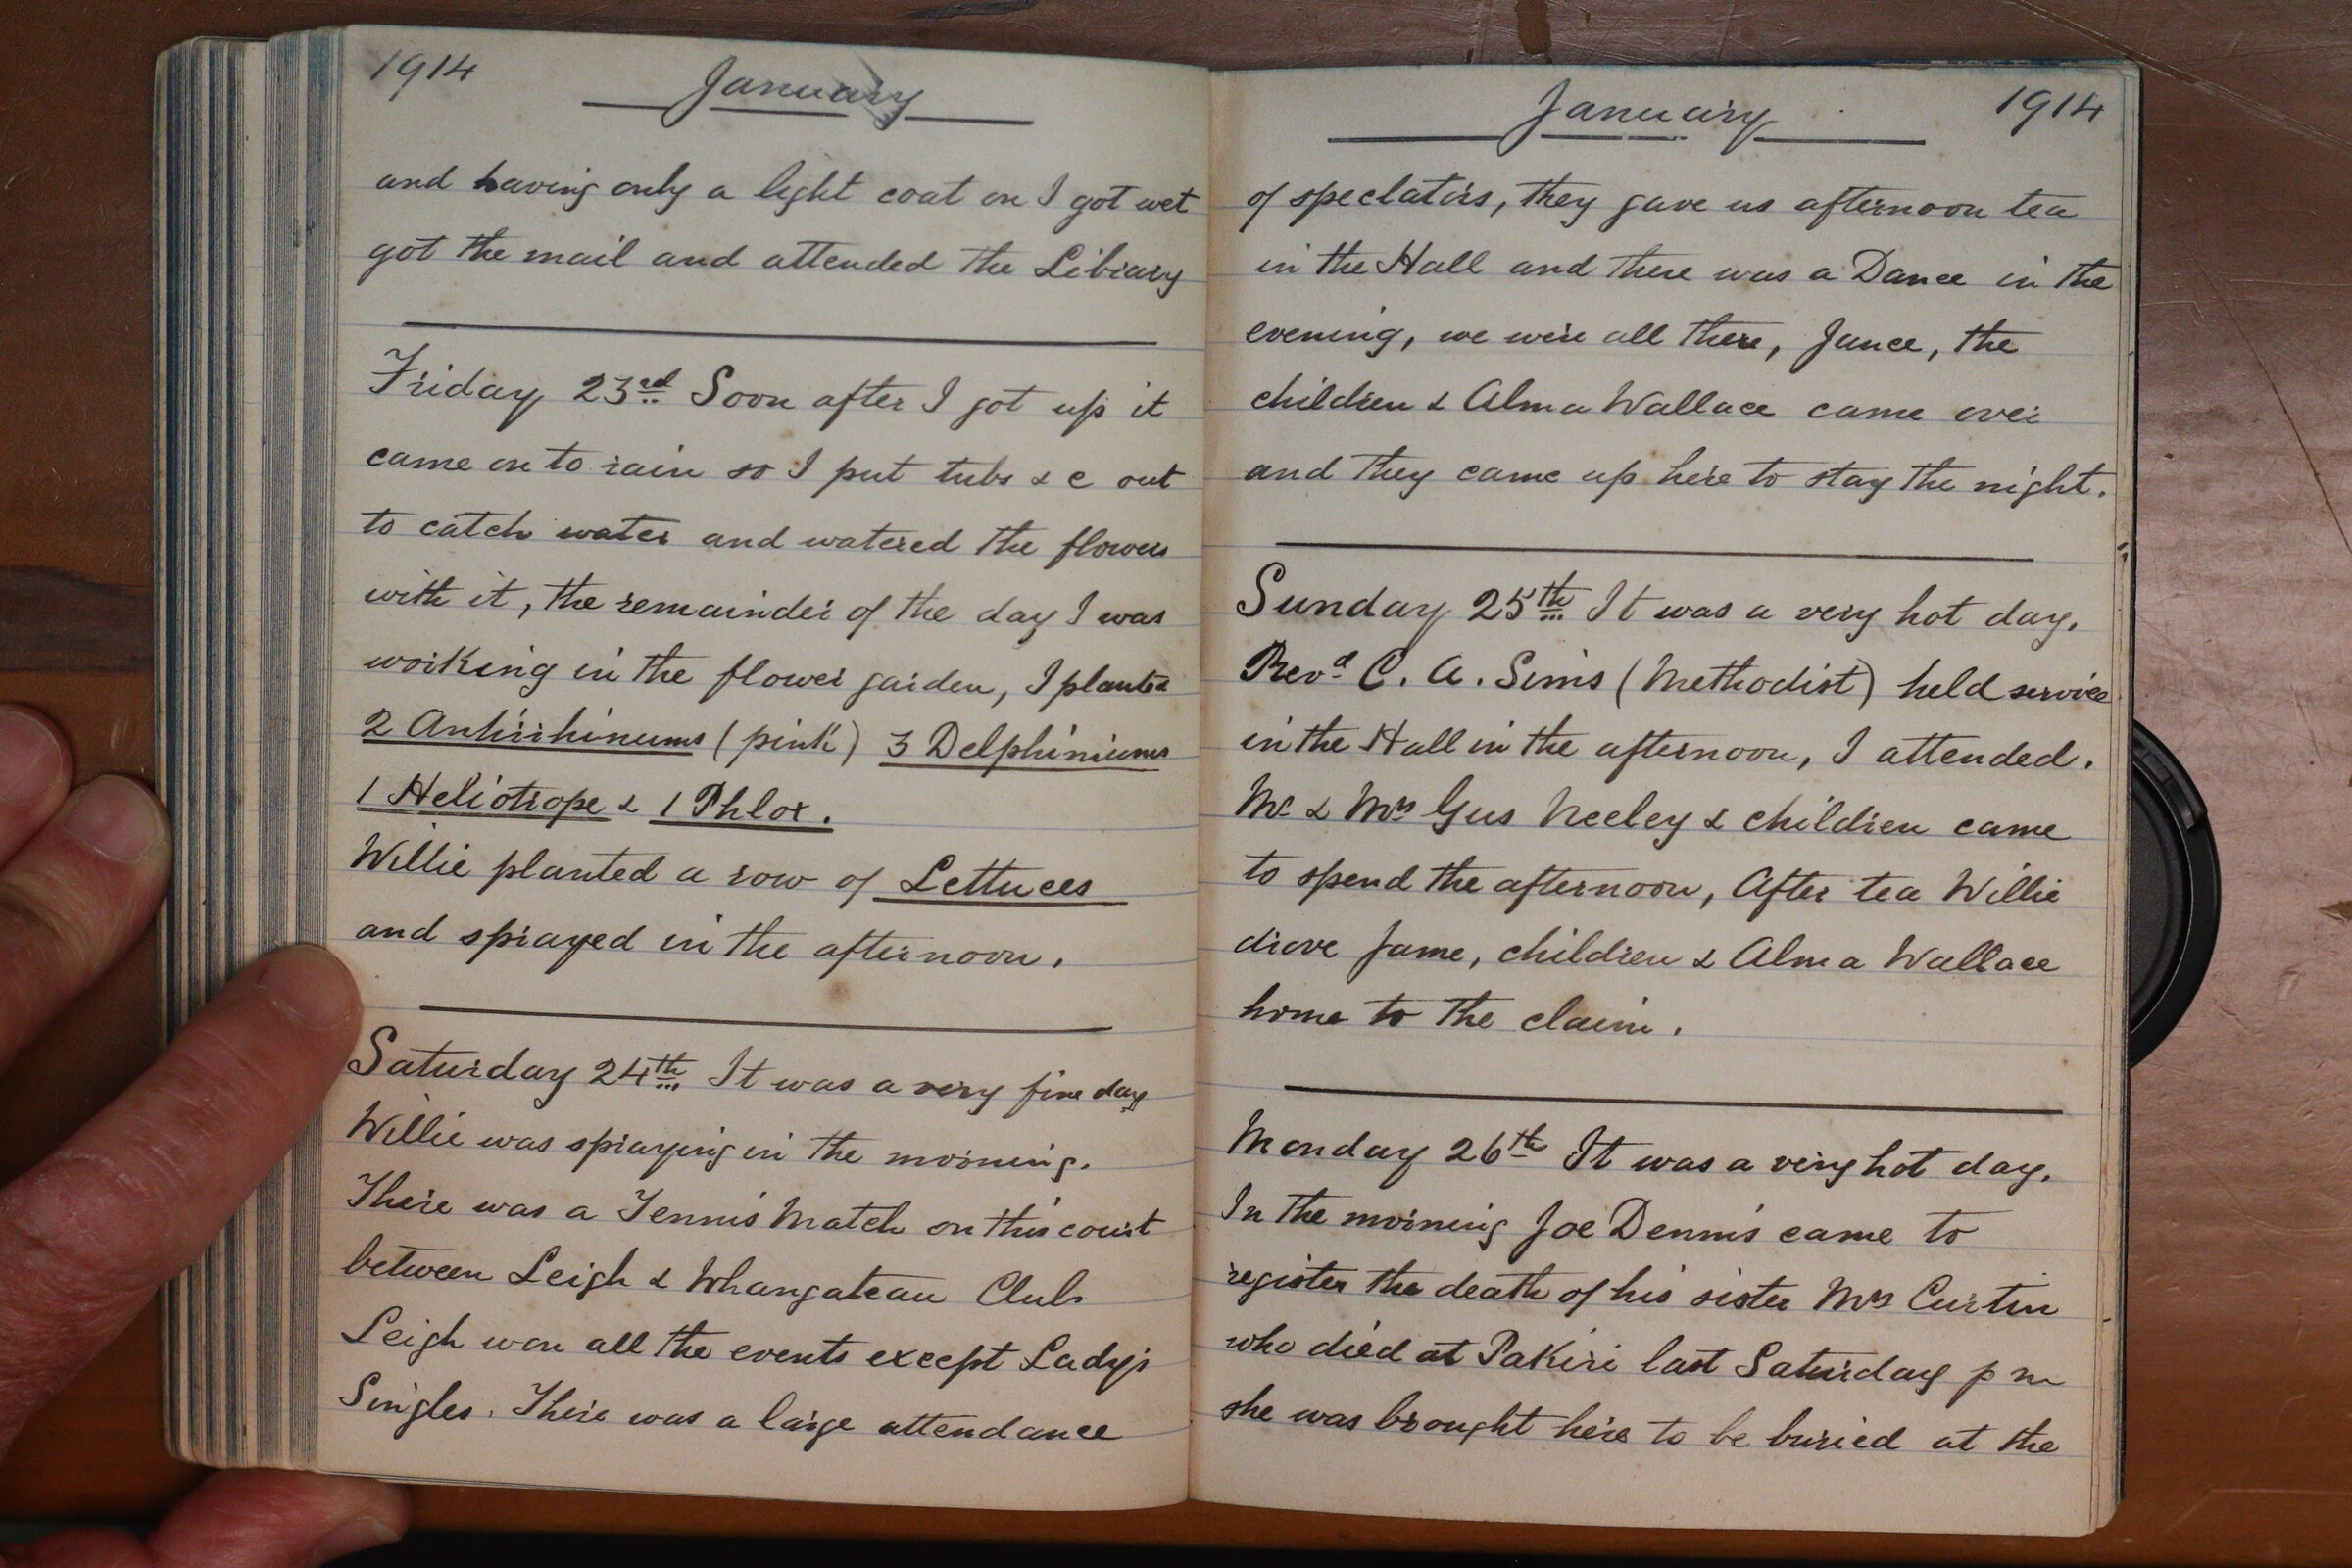 1914
January
and having only a light coat on I got wet
got the mail and attended the Library
Friday 23rd Soon after I got up it
came on to rain so I put tubs & c out
to catch water and watered the flowers
with it, the remainder of the day I was
working in the flower garden, I planted
2 Antirrhinums (pink) 3 Delphiniums
1 Heliotrope & 1 Phlox.
Willie planted a row of Lettuces
and sprayed in the afternoon.
Saturday 24th It was a very fine day
Willie was spraying in the morning.
There was a Tennis Match on this court
between Leigh & Whangateau Club
Leigh won all the events except Lady's
Singles. There was a large attendance
January
1914
of spectators, they gave us afternoon tea
in the Hall and there was a Dance in the
evening, we were all there, Janee, the
children & Alma Wallace came over
and they came up here to stay the night.
Sunday 25th It was a very hot day.
Revd C. A. Sims (Methodist) held service
in the Hall in the afternoon, I attended.
Mr & Mrs Gus Neeley & children came
to spend the afternoon, After tea Willie
drove Janie, children & Alma Wallace
home to the claim.
Monday 26th It was a very hot day.
In the morning Joe Dennis came to
register the death of his sister Mrs Curtin
who died at Pakiri last Saturday p m
she was brought here to be buried at the